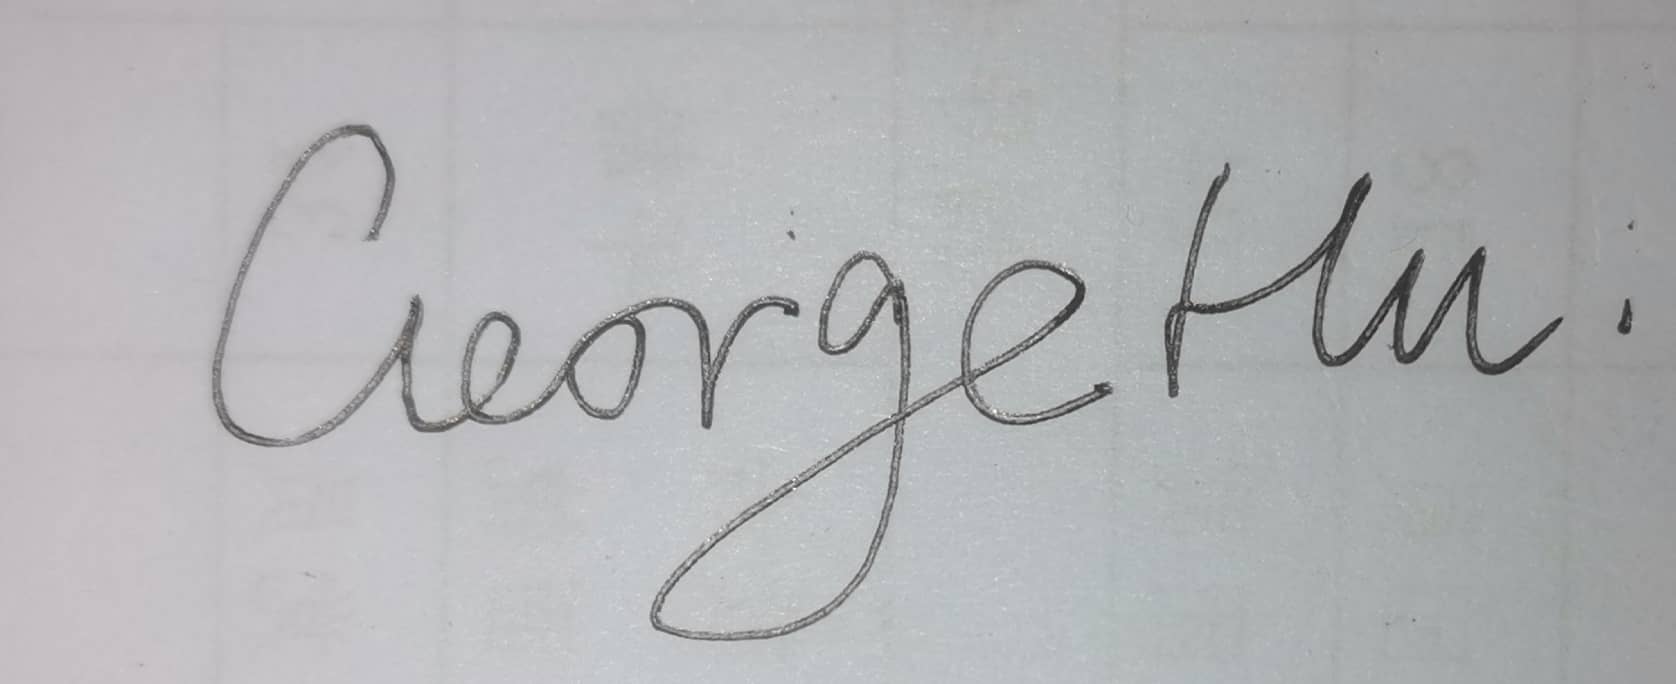 George Hu.